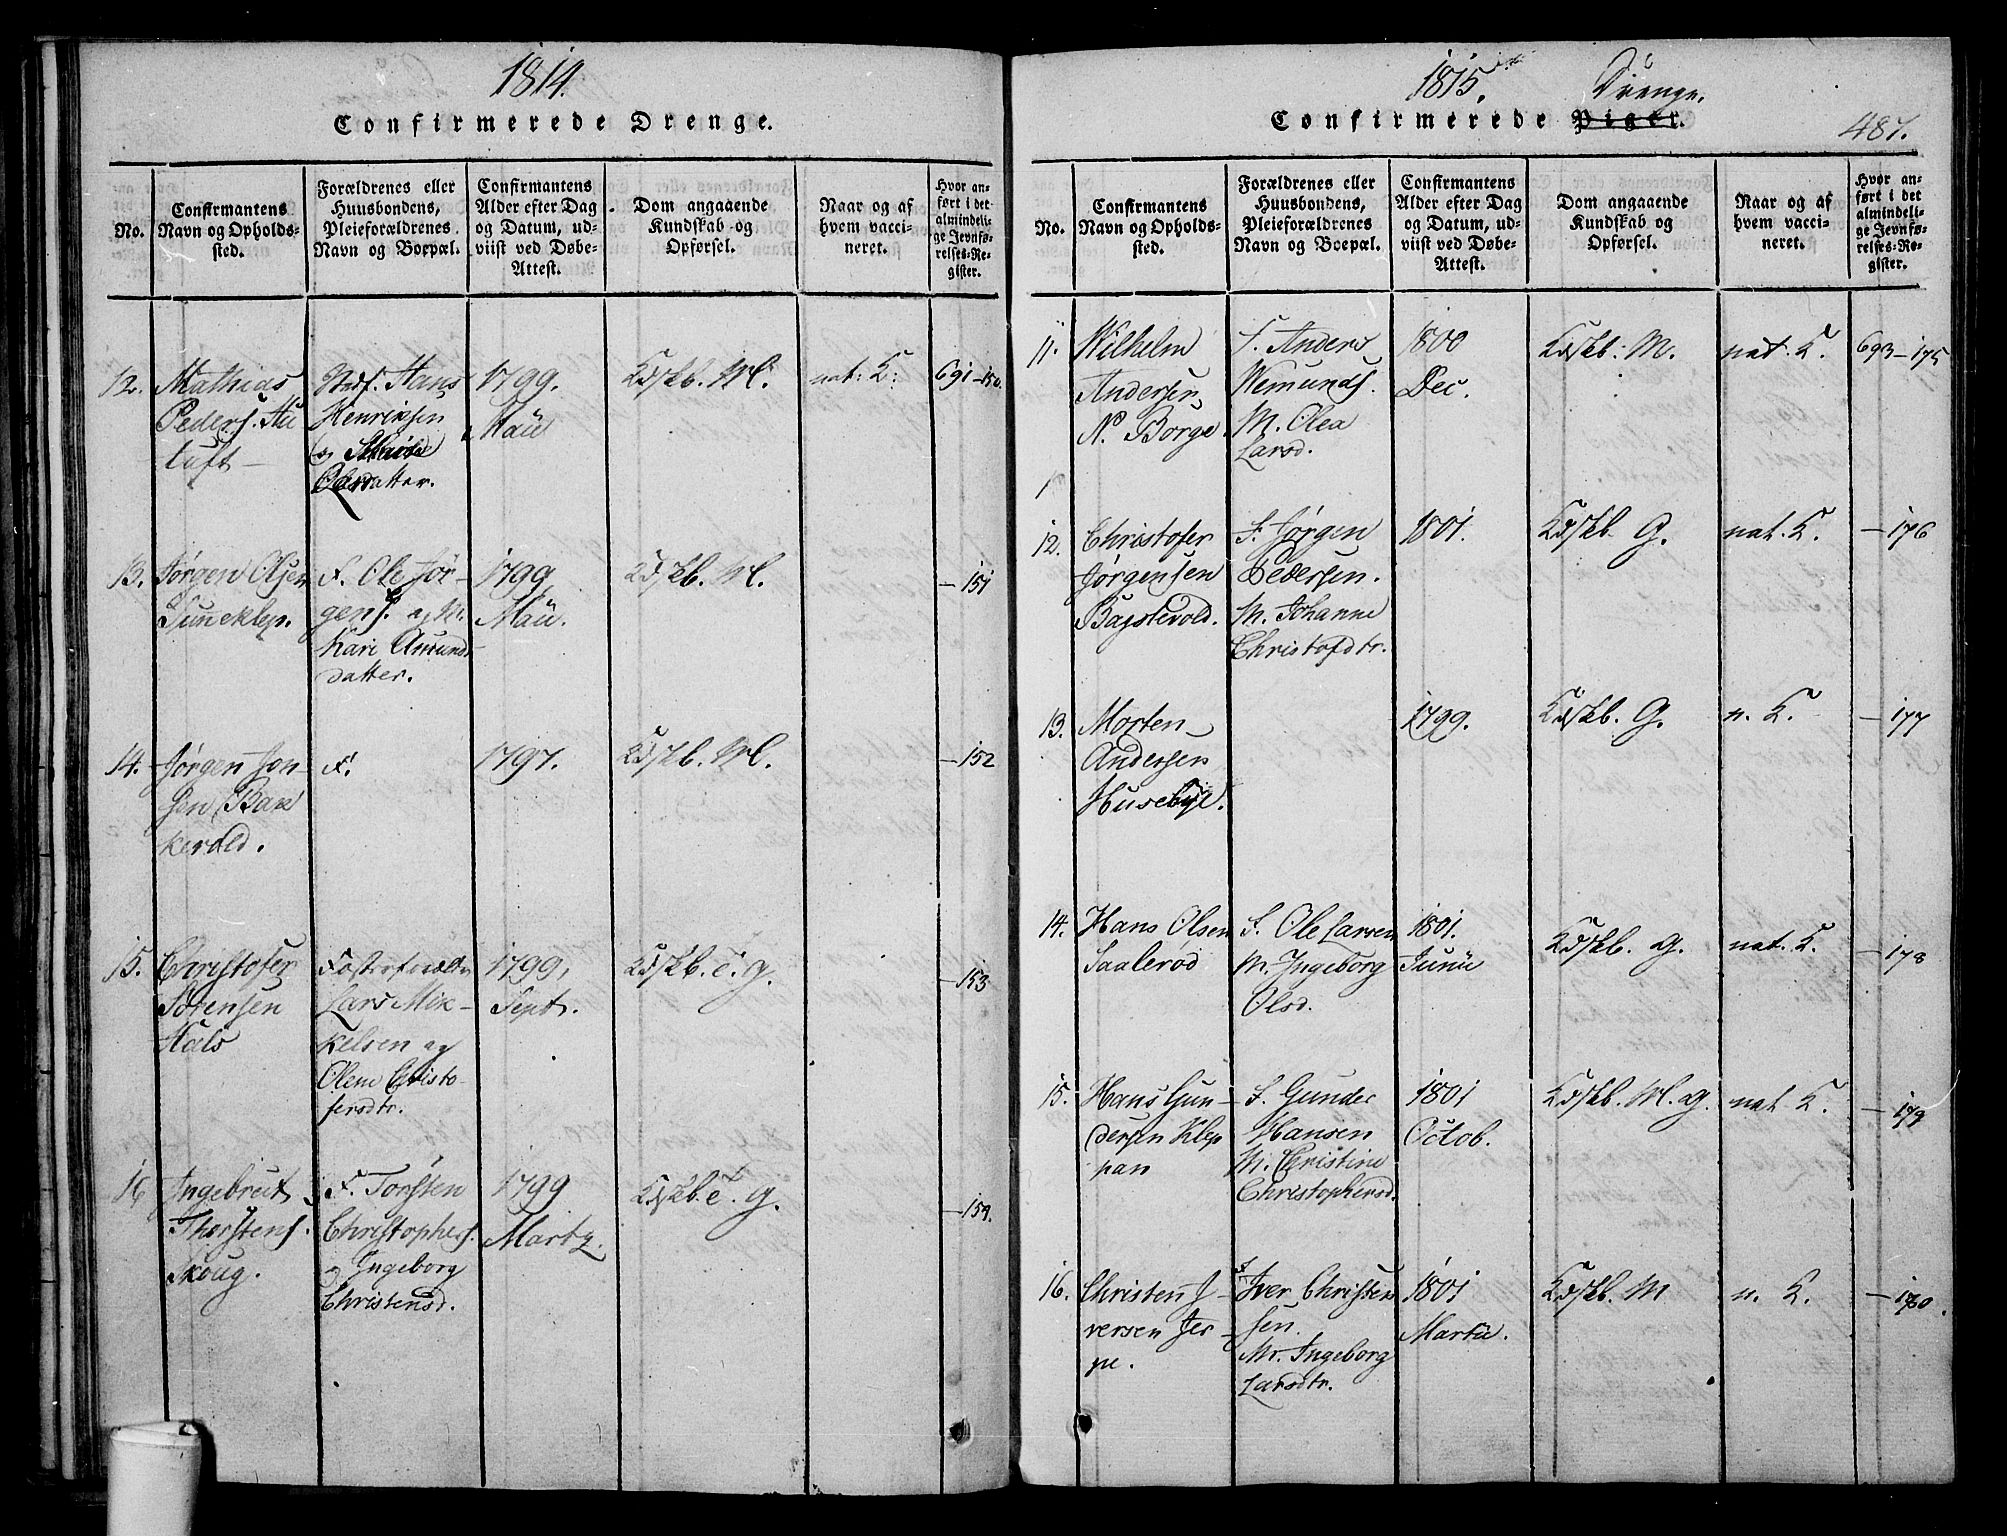 1814.
Confirmerede Drenge.
No.
Confirmantens
Navn og Opholds-
sted.
Forældrenes eller
Huusbondens,
Pleieforældrenes
Navn og Boepæl.
Confirmantens
Alder efter Dag
og Datum, ud-
viist ved Døbe-
Attest.
Dom angaaende
Kundskab og
Opførsel.
Naar og af
hvem vacci-
neret.
Hvor an-
ført i det
almindeli-
ge Jevnfø-
relses-Re-
gister.
12.
Mathias
Peders. Au
luft
Hans
Henriksen
og
Olsdatter.
1799.
Maii
Kdskb. M.
nat: K:
691-150.
13.
Jørgen Olsen
Suneklep.
F. Ole Jør-
gens. og M.
Kari Amunds
datter.
1799
Maii.
Kdskb. M.
-151
14.
Jørgen Jon-
sen Bak
kevold.
F.
1797.
Kdskb. M.
-152
15.
Christofer
Sörensen
Hals
Fosterforældre
Lars Mik-
kelsen og
Olene Christo-
fersdtr.
1799,
Sept.
Kdskb. T. g.
-153
16
Ingebret
Thorstens.
Skoug.
F. Torsten
Christophers.
og Ingeborg
Christensd.
1799
Martz.
Kdskb. T. g.
-154.
1815.
Drenge.
Confirmerede Piger.
487.
No.
Confirmantens
Navn og Opholds-
sted.
Forældrenes eller
Huusbondens,
Pleieforældrenes
Navn og Boepæl.
Confirmantens
Alder efter Dag
og Datum, ud-
viist ved Døbe-
Attest.
Dom angaaende
Kundskab og
Opførsel.
Naar og af
hvem vacci-
neret.
Hvor an-
ført i det
almindeli-
ge Jevnfø-
relses-Re-
gister.
11.
Wilhelm
Andersen
N. Borge.
F. Anders
Wemunds.
M. Olea
Larsd.
1800
Dec.
Kdskb: M.
nat. K.
693-175
12.
Christofer
Jørgensen
Bagstevold.
F. Jørgen
Pedersen.
M. Johanne
Christofdtr.
1801.
Kdskb G.
nat. K.
-176
13.
Morten
Andersen
Husebye.
1799.
Kdskb. G.
n. K.
-177
14.
Hans Olsen
Saalerød
F. Ole Larsen
M. Ingeborg
Olsd.
1801.
Junii
Kdskb. G.
nat. K.
-178
15.
Hans Gun-
dersen Klep
pan
F. Gunder
Hansen
M. Christine
Christophersd.
1801
Octob.
Kdskb. M. g.
nat K.
-179
16.
Christen I-
versen Jer-
pe.
F. Iver Christen
sen.
M. Ingeborg
Larsdtr.
1801
Martii.
Kdskb. M
n. K.
-180.